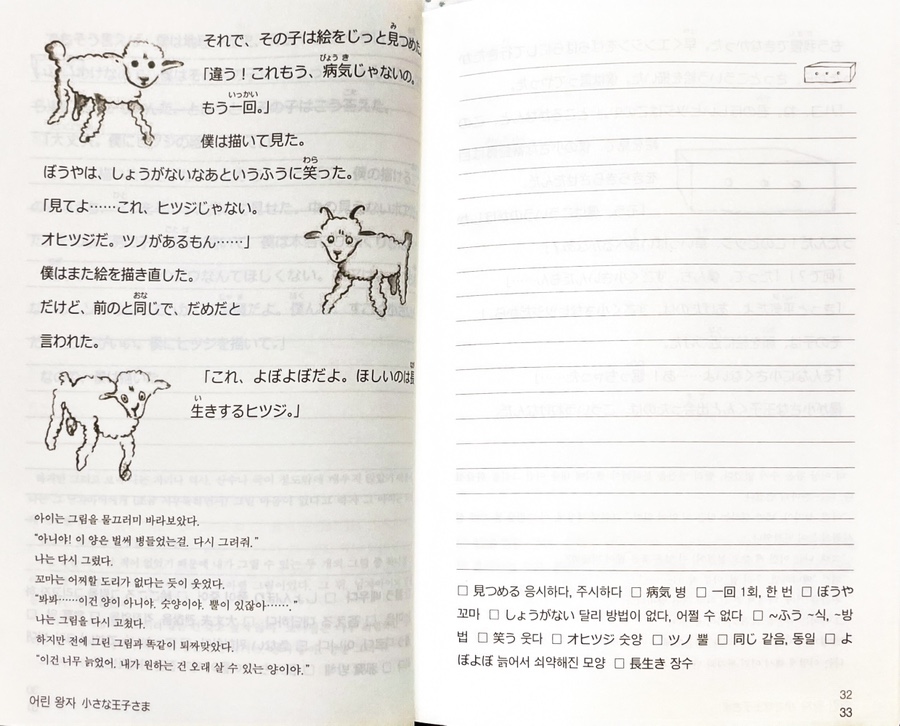 それで、その子は絵をじっと見つめた。
「違う！これもう、病気じゃないの。
もう一回。」
僕は描いて見た。
ぼうやは、しょうがないなあというふうに笑った。
「見てよ……これ、ヒツジじゃない。
オヒツジだ。ツノがあるもん……」
僕はまた絵を描き直した。
だけど、前のと同じで、だめだと
言われた。
「これ、よぼよぼだよ。ほしいのは長
生きするヒツジ。」
아이는 그림을 물끄러미 바라보았다.
"아니야! 이 양은 벌써 병들었는걸. 다시 그려줘."
나는 다시 그렸다.
꼬마는 어찌할 도리가 없다는 듯이 웃었다.
"봐봐……이건 양이 아니야. 숫양이야. 뿔이 있잖아……."
나는 그림을 다시 고쳤다.
하지만 전에 그린 그림과 똑같이 퇴짜맞았다.
"이건 너무 늙었어. 내가 원하는 건 오래 살 수 있는 양이야."
어린 왕자 小さな王子さま
□ 見つめる 응시하다, 주시하다 □ 病気 병 □ 一回 1회, 한 번 □ ぼうや
꼬마 □ しょうがない 달리 방법이 없다, 어쩔 수 없다 □ ~ふう ~식, ~방
법 □ 笑う 웃다 □ オヒツジ 숫양 □ ツノ 뿔 □ 同じ 같음, 동일 □ よ
ぼよぼ 늙어서 쇠약해진 모양 □ 長生き 장수
32
33